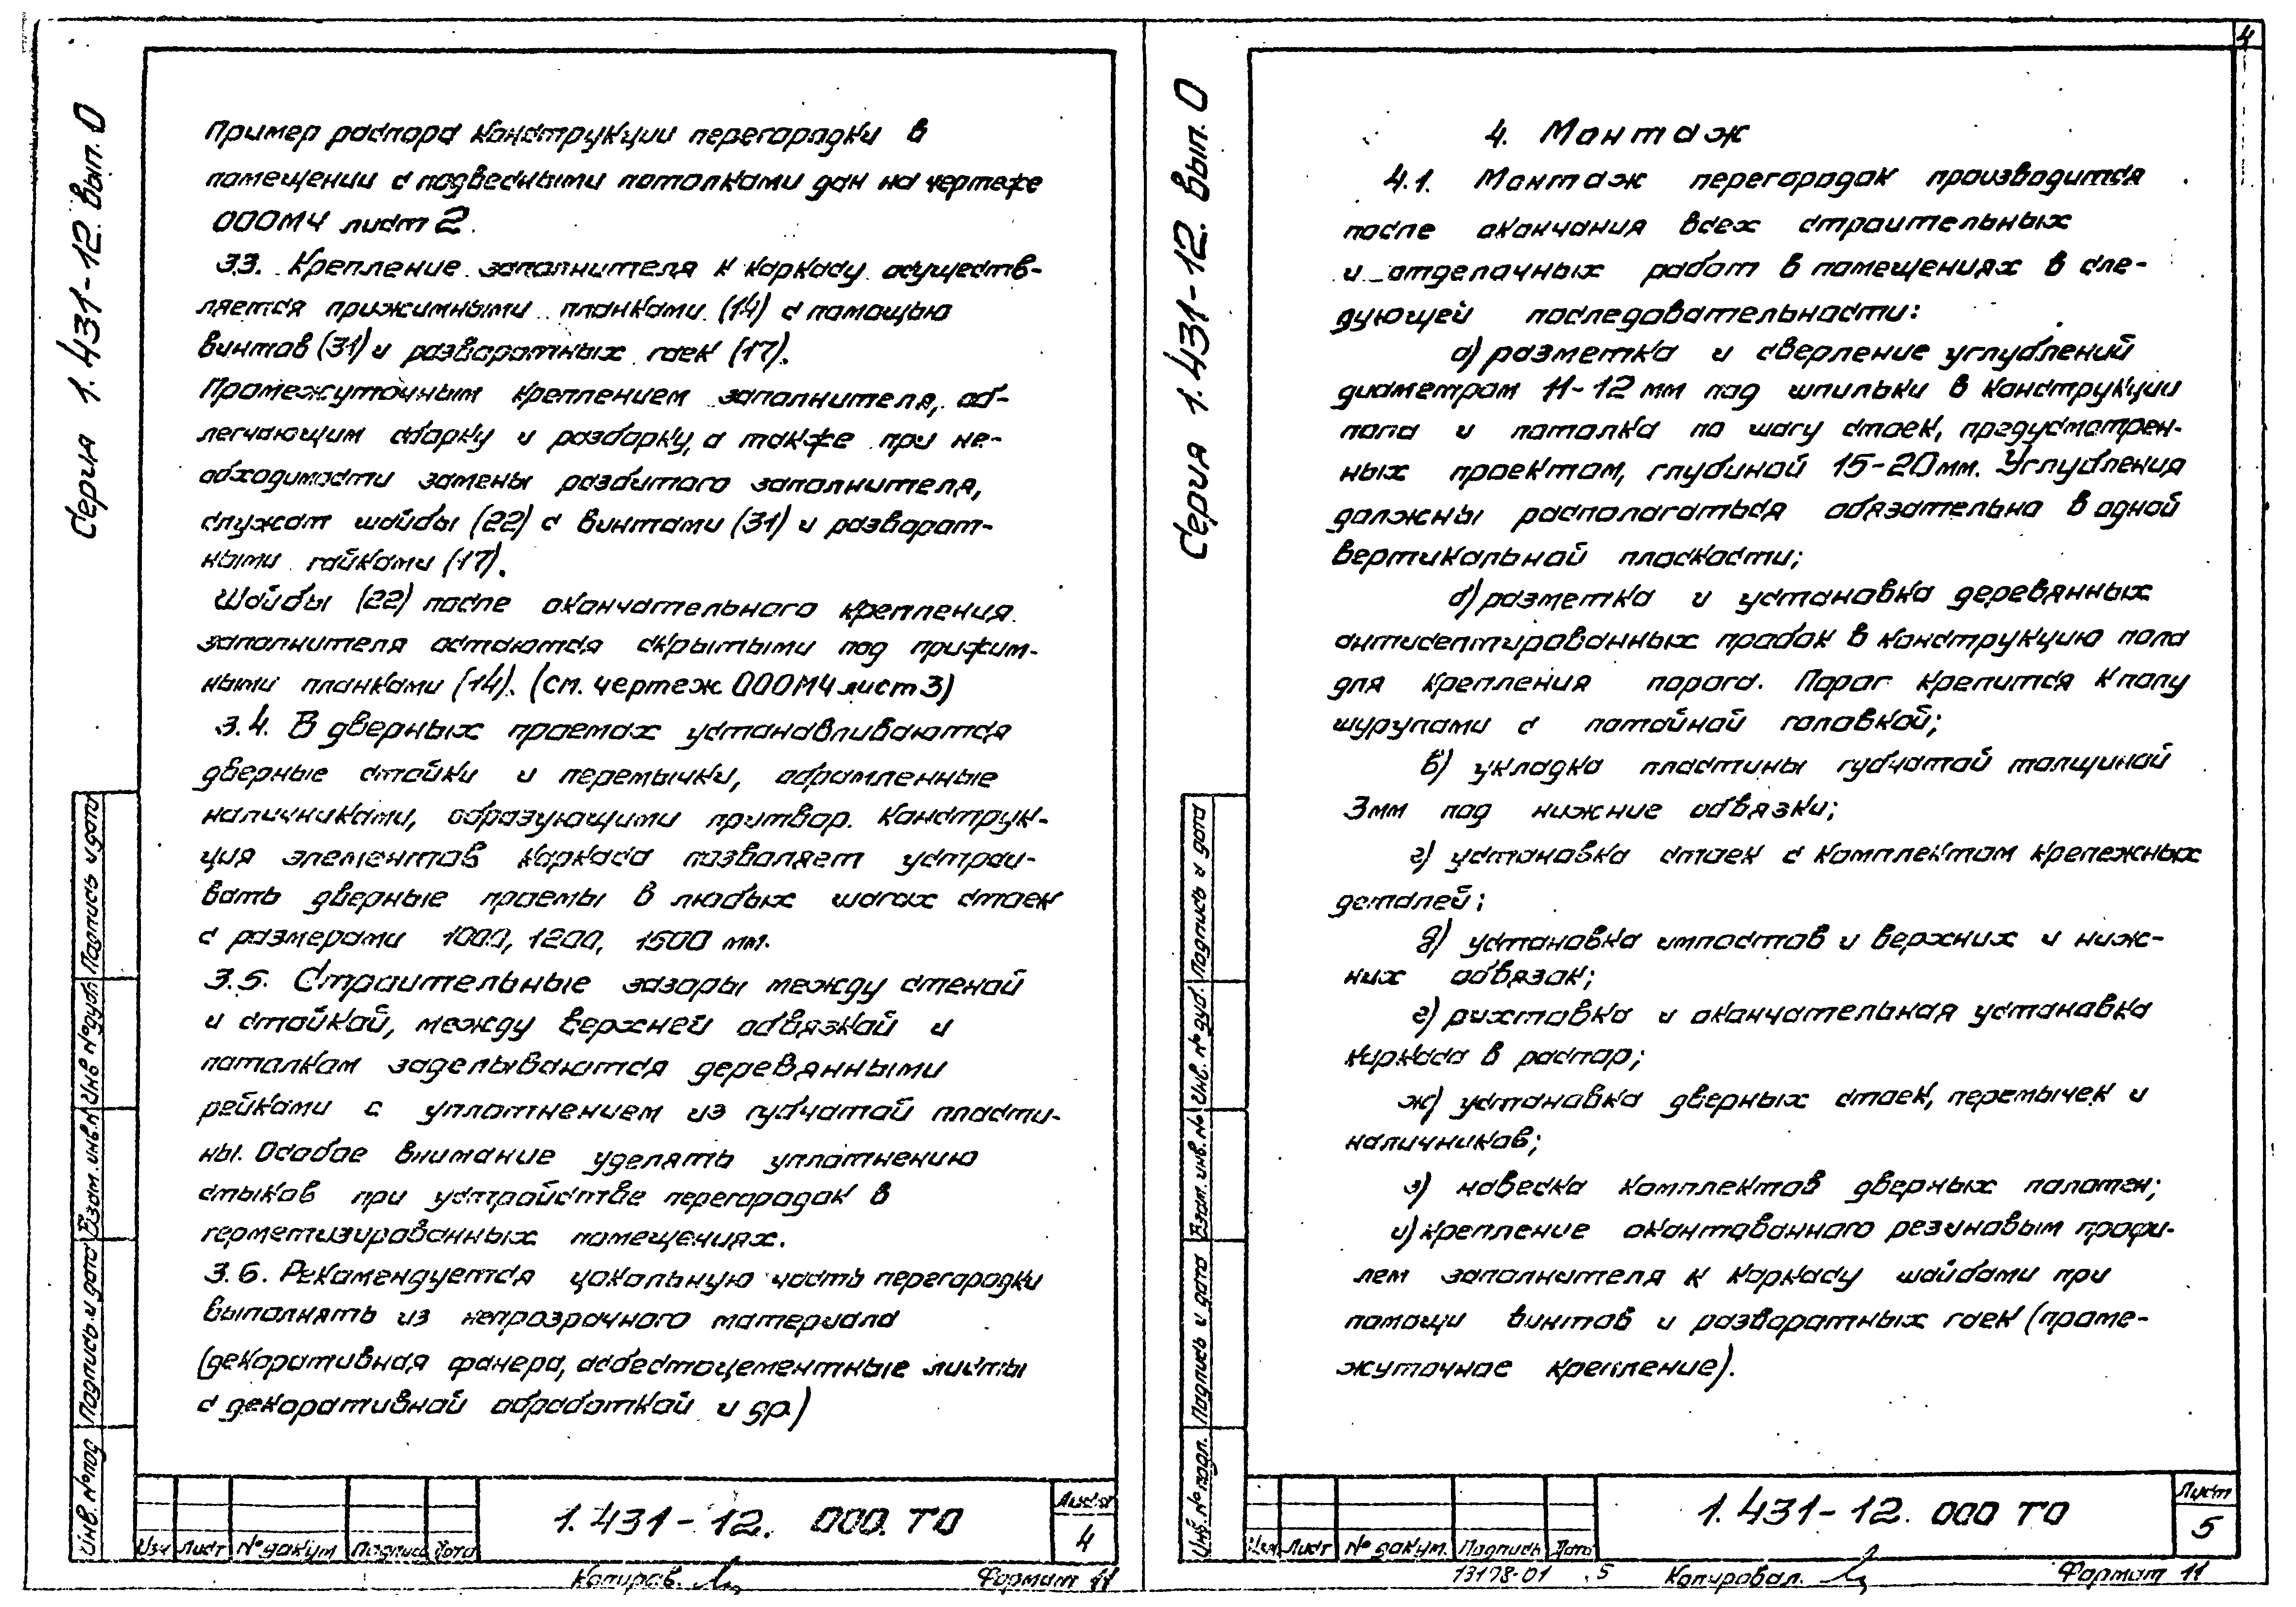 4
Серия 1.431-12. Вып. 0
Пример распора конструкции перегородки в
помещении с подвесными потолками дан на чертеже
000МЧ лист 2.
3.3. Крепление заполнителя к каркасу осуществ-
ляется прижимными планками (14) с помощью
винтов (31) и разворотных гаек (17).
Промежуточным креплением заполнителя, об-
легчающим сборку и разборку, а также при не-
обходимости замены разбитого заполнителя,
служат шайбы (22) с винтами (31) и разворот-
ными гайками (17).
Шайбы (22) после окончательного крепления
заполнителя остаются скрытыми под прижим-
ными планками (14). (см. чертеж 000МЧ лист 3)
3.4. В дверных проемах устанавливаются
дверные стойки и перемычки, обрамленные
наличниками, образующими притвор. Конструк-
ция элементов каркаса позволяет устраи-
вать дверные проемы в любых шагах стоек
с размерами 1000, 1200, 1500 мм.
3.5. Строительные зазоры между стеной
и стойкой, между верхней обвязкой и
потолком заделываются деревянными
рейками с уплотнением из губчатой пласти-
ны. Особое внимание уделять уплотнению
стыков при устройстве перегородок в
герметизированных помещениях.
3.6. Рекомендуется цокольную часть перегородки
выполнять из непрозрачного материала
(декоративная фанера, асбестоцементные листы
с декоративной обработкой и др.)
Инв. № под
Подпись и дата
Взам. инв. №
Инв № дубл
Подпись и дата
Изм Лист № докум Подпись Дата
1.431-12. 000. ТО
Лист
4
Копиров.
Формат 11
Серия 1.431-12. Вып. 0
4. Монтаж
4.1. Монтаж перегородок производится
после окончания всех строительных
и отделочных работ в помещениях в сле-
дующей последовательности:
а) разметка и сверление углублений
диаметром 11-12 мм под шпильки в конструкции
пола и потолка по шагу стоек, предусмотрен-
ных проектом, глубиной 15-20мм. Углубления
должны располагаться обязательно в одной
вертикальной плоскости;
б) разметка и установка деревянных
антисептированных пробок в конструкцию пола
для крепления порога. Порог крепится к полу
шурупами с потайной головкой;
в) укладка пластины губчатой толщиной
3мм под нижние обвязки;
г) установка стоек с комплектом крепежных
деталей;
д) установка импостов и верхних и ниж-
них обвязок;
е) рихтовка и окончательная установка
каркаса в распор;
ж) установка дверных стоек, перемычек и
наличников;
з) навеска комплектов дверных полотен;
и) крепление окантованного резиновым профи-
лем заполнителя к каркасу шайбами при
помощи винтов и разворотных гаек (проме-
жуточное крепление).
Инв. № подл.
Подпись и дата
Взам. инв. №
Инв. № дуб.
Подпись и дата
Изм Лист № докум. Подпись Дата
1.431-12. 000 ТО
Лист
5
13178-01 5
Копировал.
Формат 11